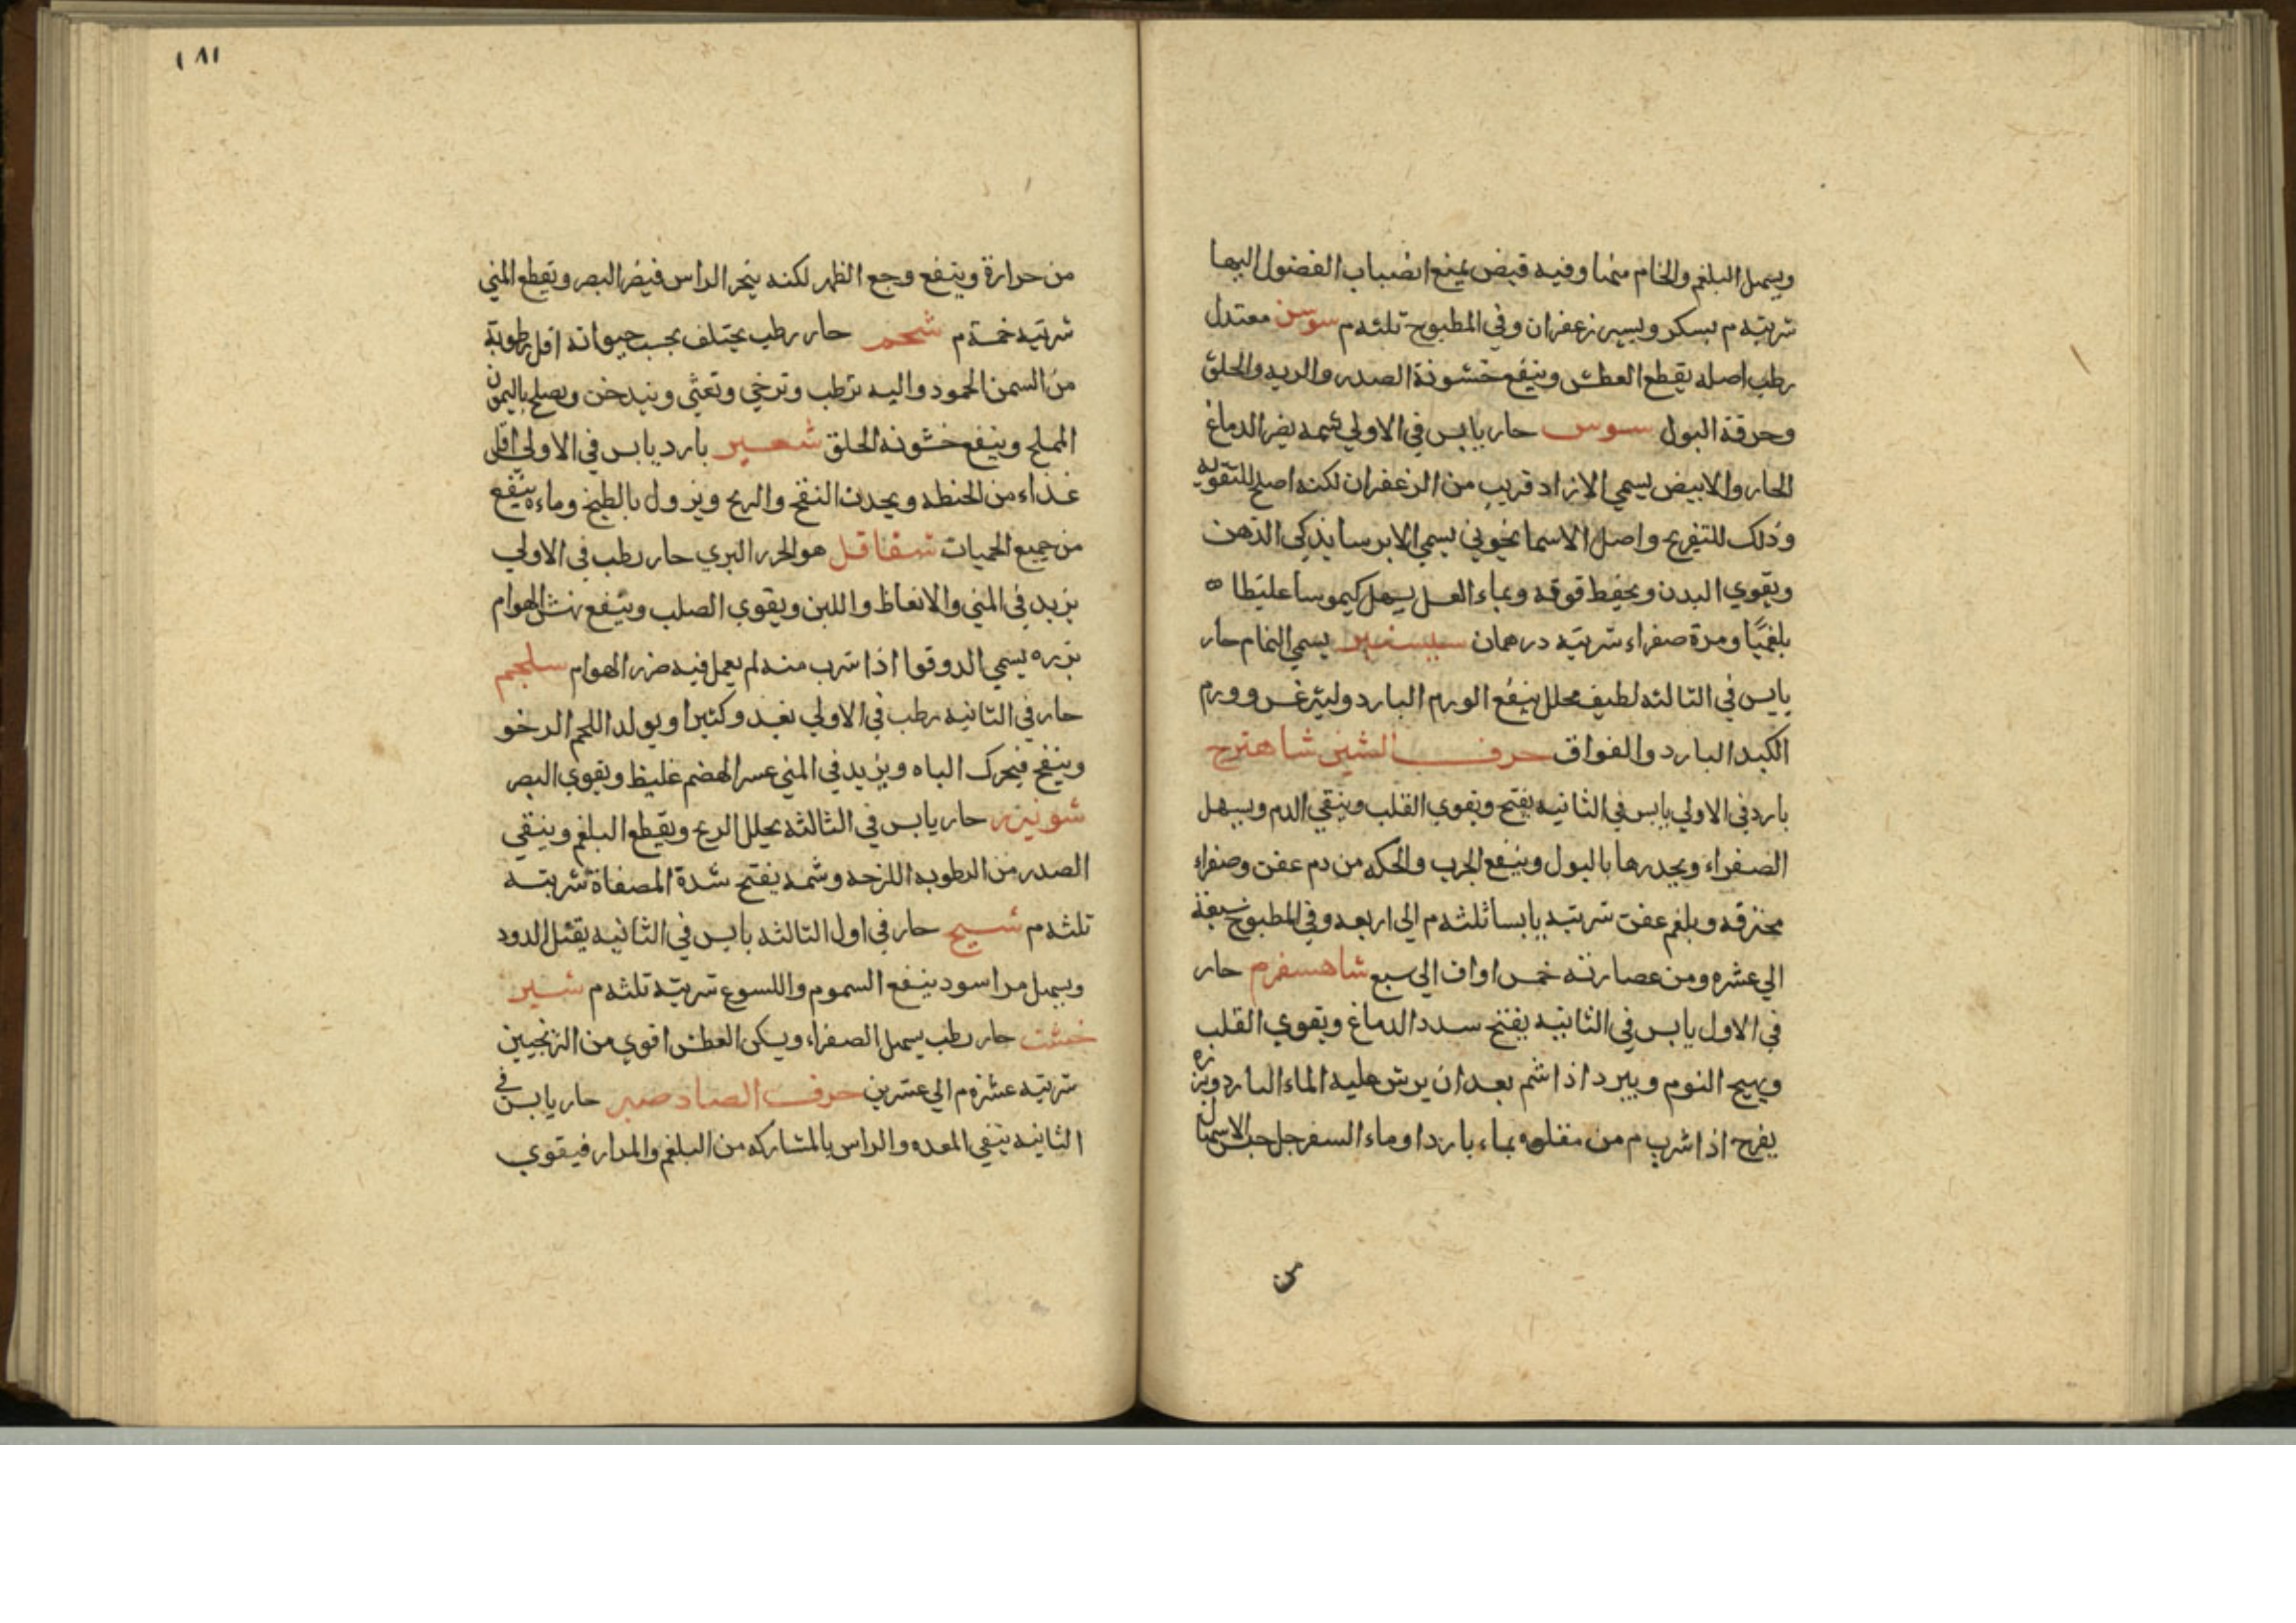 ويسهل البلغم والخام منها وفيه قبض يمنع انصباب الفضول اليها
شربته م بسكر ويسير زعفران وفي المطبوخ ثلثه م سوس معتدل
رطب اصله يقطع العطش وينفع خشونة الصدر والريه والحلق
وحرقة البول سوسن حار يابس في الاولي شمه يضر الدماغ
الحار والابيض يسمي الازاد قريب من الزعفران لكنه اصلح للتقويه
وذلك للتفريح واصل الاسمانجوني يسمي الايرسا يذكي الذهن
ويقوي البدن ويحفظ قوته وبماء العسل يسهل كيموسا غليظا ه
بلغميا ومرة صفراء شربته درهمان سيسنبر يسمي النمام حار
يابس في الثالثه لطيف محلل ينفع الورم البارد وليثرغس وورم
الكبد البارد والفواق حرف الشين شاهترج
بارد في الاولي يابس في الثانيه يفتح ويقوي القلب وينقي الدم ويسهل
الصفراء ويحدرها بالبول وينفع الجرب والحكه من دم عفن وصفراء
محترقه وبلغم عفن شربته يابسا ثلثه م الي اربعه وفي المطبوخ سبعة
الي عشره ومن عصارته خمس اواق الي سبع شاهسفرم حار
في الاول يابس في الثانيه يفتح سدد الدماغ ويقوي القلب
ويهيج النوم ويبرد اذا شم بعد ان يرش عليه الماء البارد وبزره
يفرح اذا شرب م من مقلوه بماء باردا وماء السفرجل حبس الاسهال
من
١٨١
من حرارة وينفع وجع الظهر لكنه يبخر الراس فيضر البصر ويقطع المني
شربته خمسة م شحم حار رطب يختلف بحسب حيوانه اقل رطوبة
من السمن المحمود واليه ترطب وترخي وتغثي ويتدخن ويصلح بالليمون
المملح وينفع خشونه الحلق شعير بارد يابس في الاولي اقل
غذاء من الحنطه ويحدث النفخ والريح ويزول بالطبخ وماءه ينفع
من جميع الحميات شقاقل هو الجزر البري حار رطب في الاولي
يزيد في المني والانعاظ واللبن ويقوي الصلب وينفع نهش الهوام
بزره يسمي الدوقوا اذا شرب منه لم يعمل فيه ضرر الهوام سلجم
حار في الثانيه رطب في الاولي يغذو كثيرا ويولد اللحم الرخو
وينفخ فيحرك الباه ويزيد في المني عسر الهضم غليظ ويقوي البصر
شونيزر حار يابس في الثالثه يحلل الريح ويقطع البلغم وينقي
الصدر من الرطوبه اللزجه وشمه يفتح سدة المصفاة شربته
ثلثه م شيح حار في اول الثالثه يابس في الثانيه يقتل الدود
ويسهل مرا اسود ينفع السموم واللسوع شربته ثلثه م شير
خشت حار رطب يسهل الصفراء ويسكن العطش اقوي من الترنجبين
شربته عشره م الي عشرين حرف الصاد صبر حار يابس في
الثانيه ينقي المعده والراس بالمشاركه من البلغم والمرار فيقوي